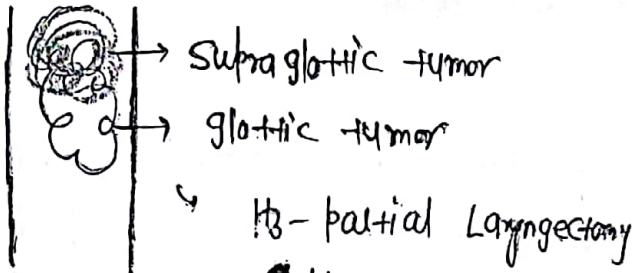 Supraglottic tumor
glottic tumor
partial Laryngectomy